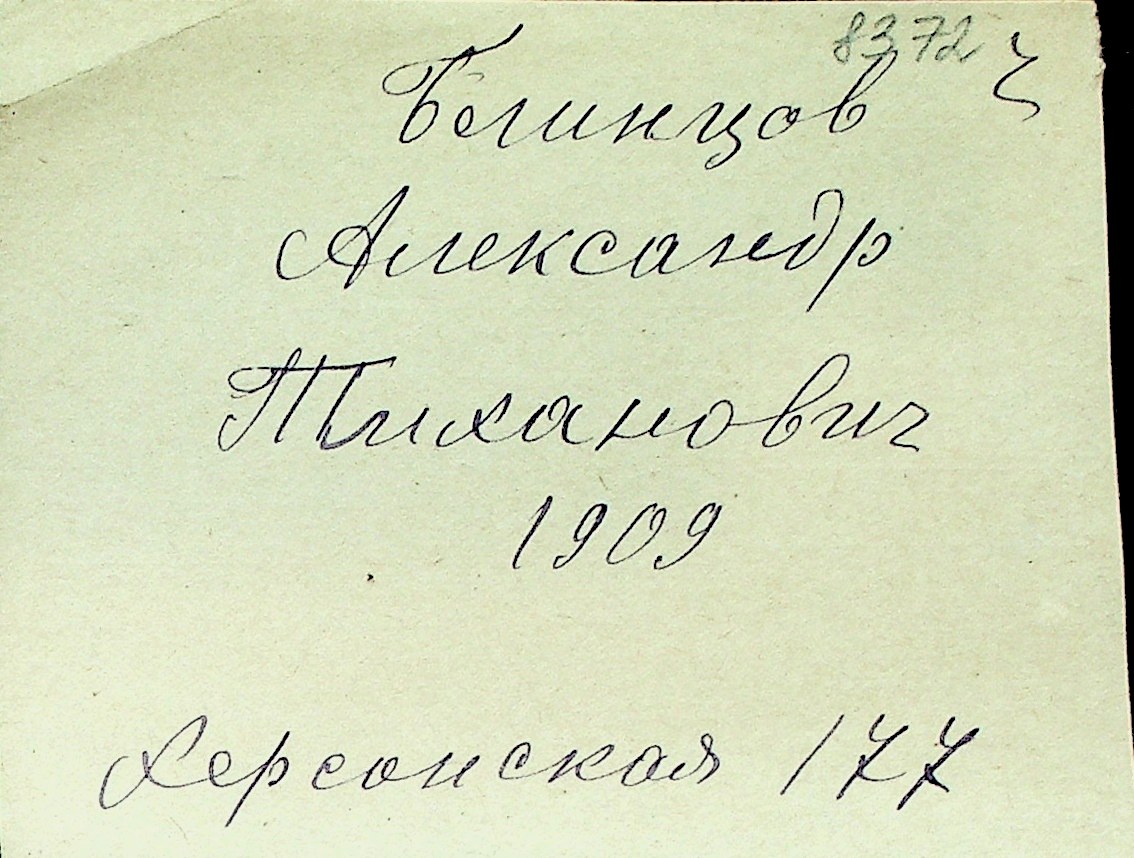 8372
Белинцов
Александр
Тиханович
1909
Херсонская 177